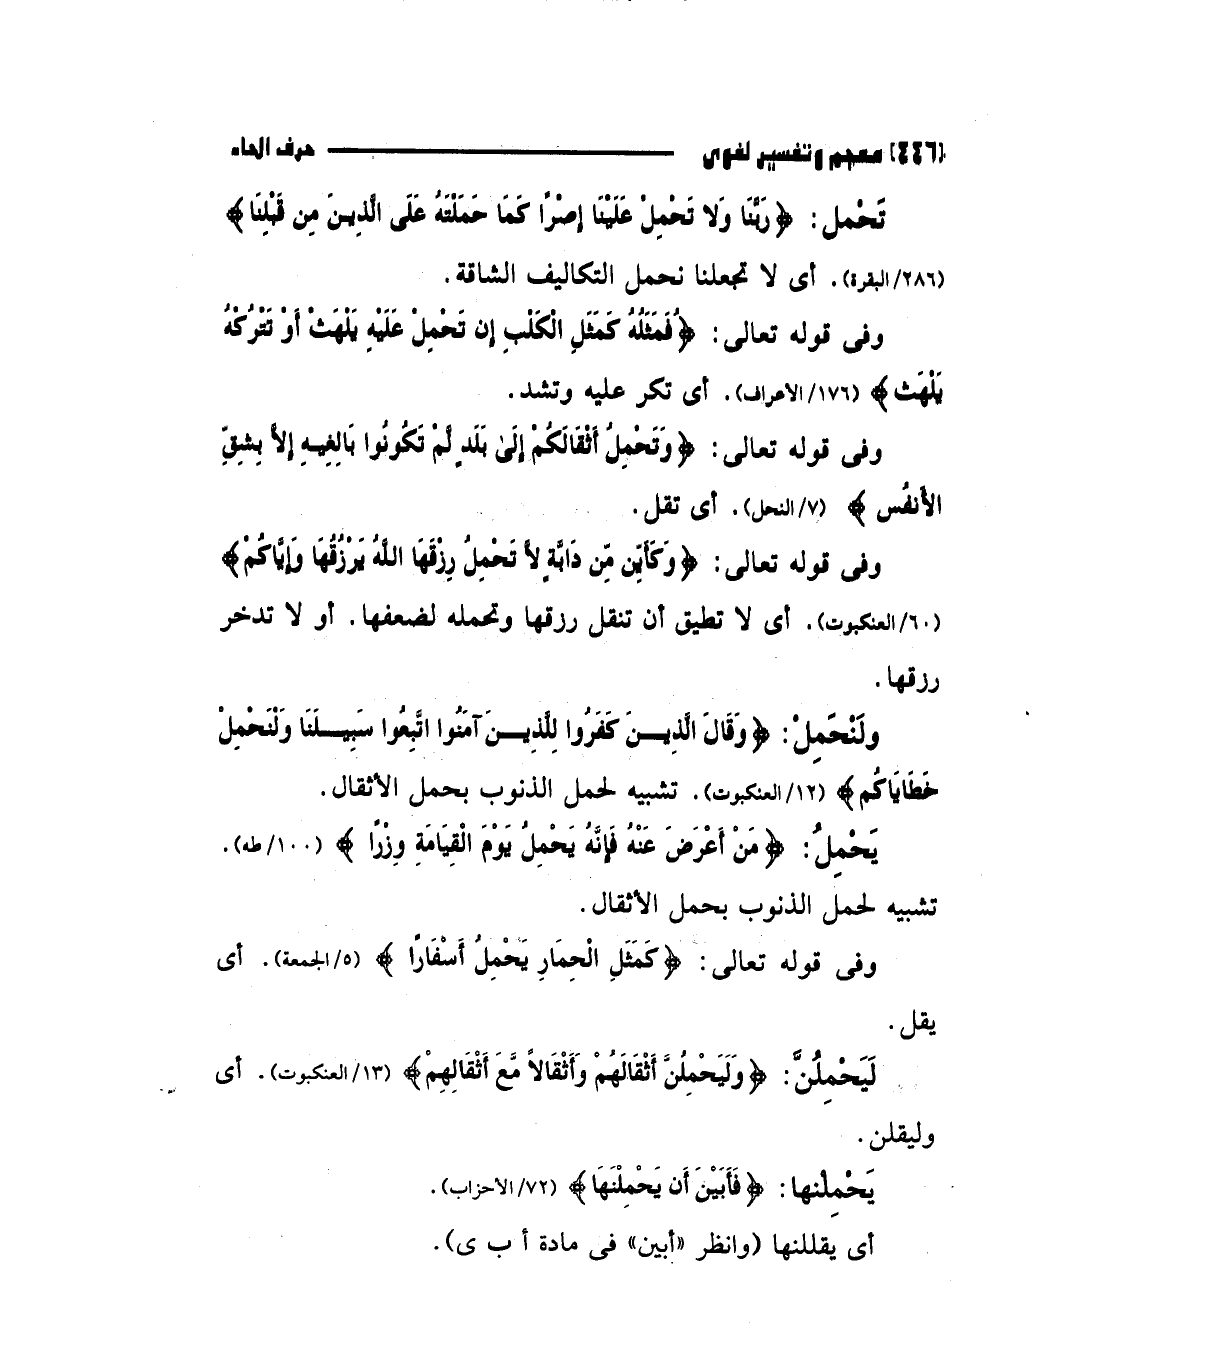 (٤٤٦) معجم وتفسير لغوى ــــــــ حرف الحاء
تَحْمل: ﴿رَبَّنَا وَلا تَحْمِلْ عَلَيْنَا إِصْرًا كَمَا حَمَلْتَهُ عَلَى الَّذِينَ مِن قَبْلِنَا﴾
(٢٨٦/البقرة). أى لا تجعلنا نحمل التكاليف الشاقة.
وفى قوله تعالى: ﴿فَمَثَلُهُ كَمَثَلِ الْكَلْبِ إِن تَحْمِلْ عَلَيْهِ يَلْهَثْ أَوْ تَتْرُكْهُ
يَلْهَث﴾ (١٧٦/الأعراف). أى تكر عليه وتشد.
وفى قوله تعالى: ﴿وَتَحْمِلُ أَثْقَالَكُمْ إِلَىٰ بَلَدٍ لَّمْ تَكُونُوا بَالِغِيهِ إِلاَّ بِشِقِّ
الأَنفُس ﴾ (٧/النحل). أى تقل.
وفى قوله تعالى: ﴿وَكَأَيِّن مِّن دَابَّةٍ لاَّ تَحْمِلُ رِزْقَهَا اللَّهُ يَرْزُقُهَا وَإِيَّاكُمْ﴾
(٦٠/العنكبوت). أى لا تطيق أن تنقل رزقها وتحمله لضعفها. أو لا تدخر
رزقها.
ولَنْحَمِلْ: ﴿وَقَالَ الَّذِيــنَ كَفَرُوا لِلَّذِيــنَ آمَنُوا اتَّبِعُوا سَبِيــلَنَا وَلْنَحْمِلْ
خَطَايَاكُم﴾ (١٢/العنكبوت). تشبيه لحمل الذنوب بحمل الأثقال.
يَحْمِلُ: ﴿مَنْ أَعْرَضَ عَنْهُ فَإِنَّهُ يَحْمِلُ يَوْمَ الْقِيَامَةِ وِزْرًا ﴾ (١٠٠/طه).
تشبيه لحمل الذنوب بحمل الأثقال.
وفى قوله تعالى: ﴿كَمَثَلِ الْحِمَارِ يَحْمِلُ أَسْفَارًا ﴾ (٥/الجمعة). أى
يقل.
لَيَحْمِلُنَّ: ﴿وَلَيَحْمِلُنَّ أَثْقَالَهُمْ وَأَثْقَالاً مَّعَ أَثْقَالِهِمْ﴾ (١٣/العنكبوت). أى
وليقلن.
يَحْمِلْنها: ﴿فَأَبَيْنَ أَن يَحْمِلْنَهَا﴾ (٧٢/الأحزاب).
أى يقللنها (وانظر «أبين» فى مادة أ ب ى).